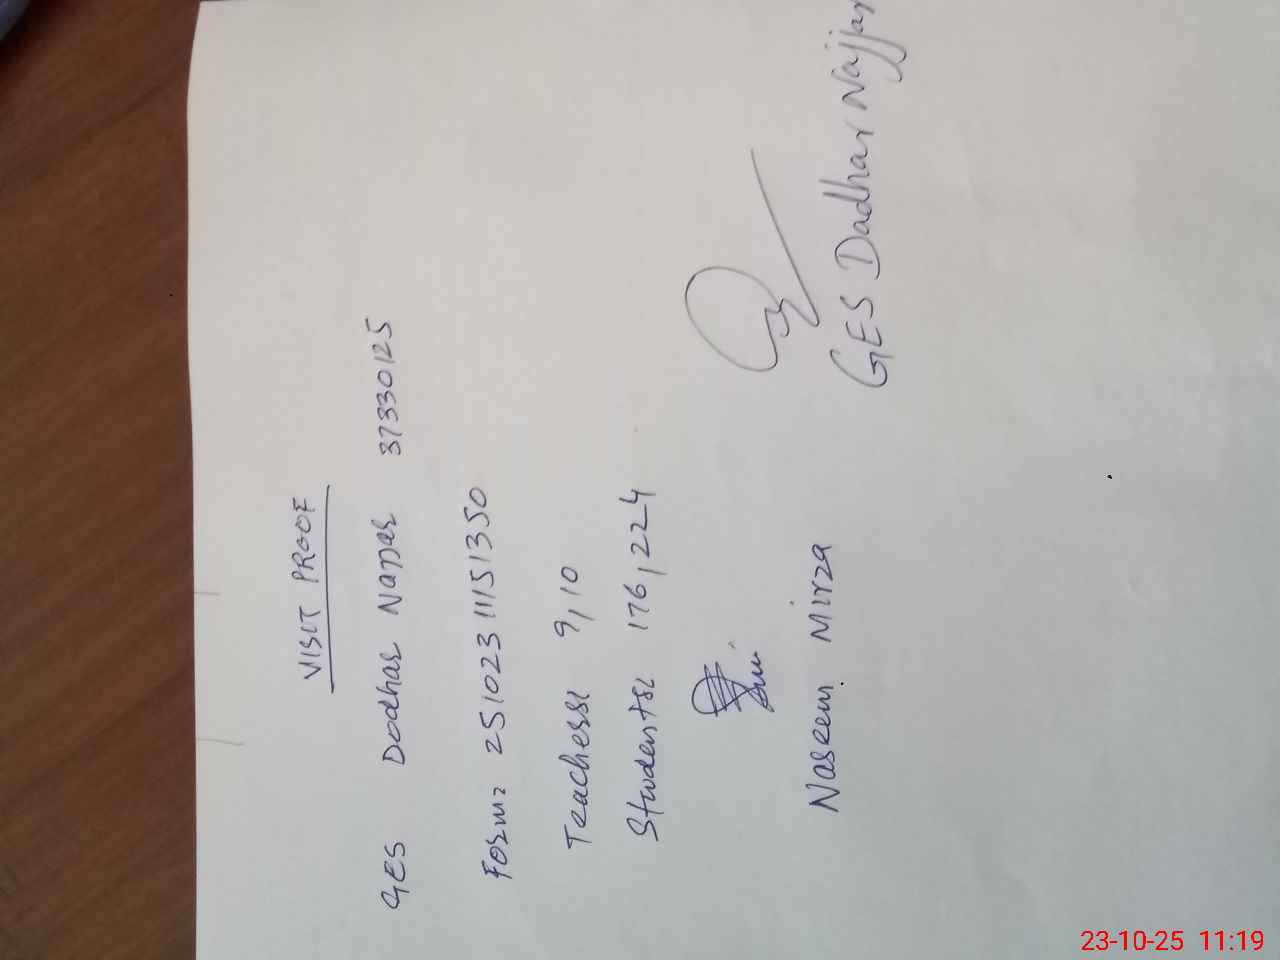 VISIT PROOF
GES Dadhar Najjar 37330125
Form: 25102311151350
Teachers: 9,10
Students: 176,224
Naseem Mirza
GES Dadhar Najjar
23-10-25 11:19